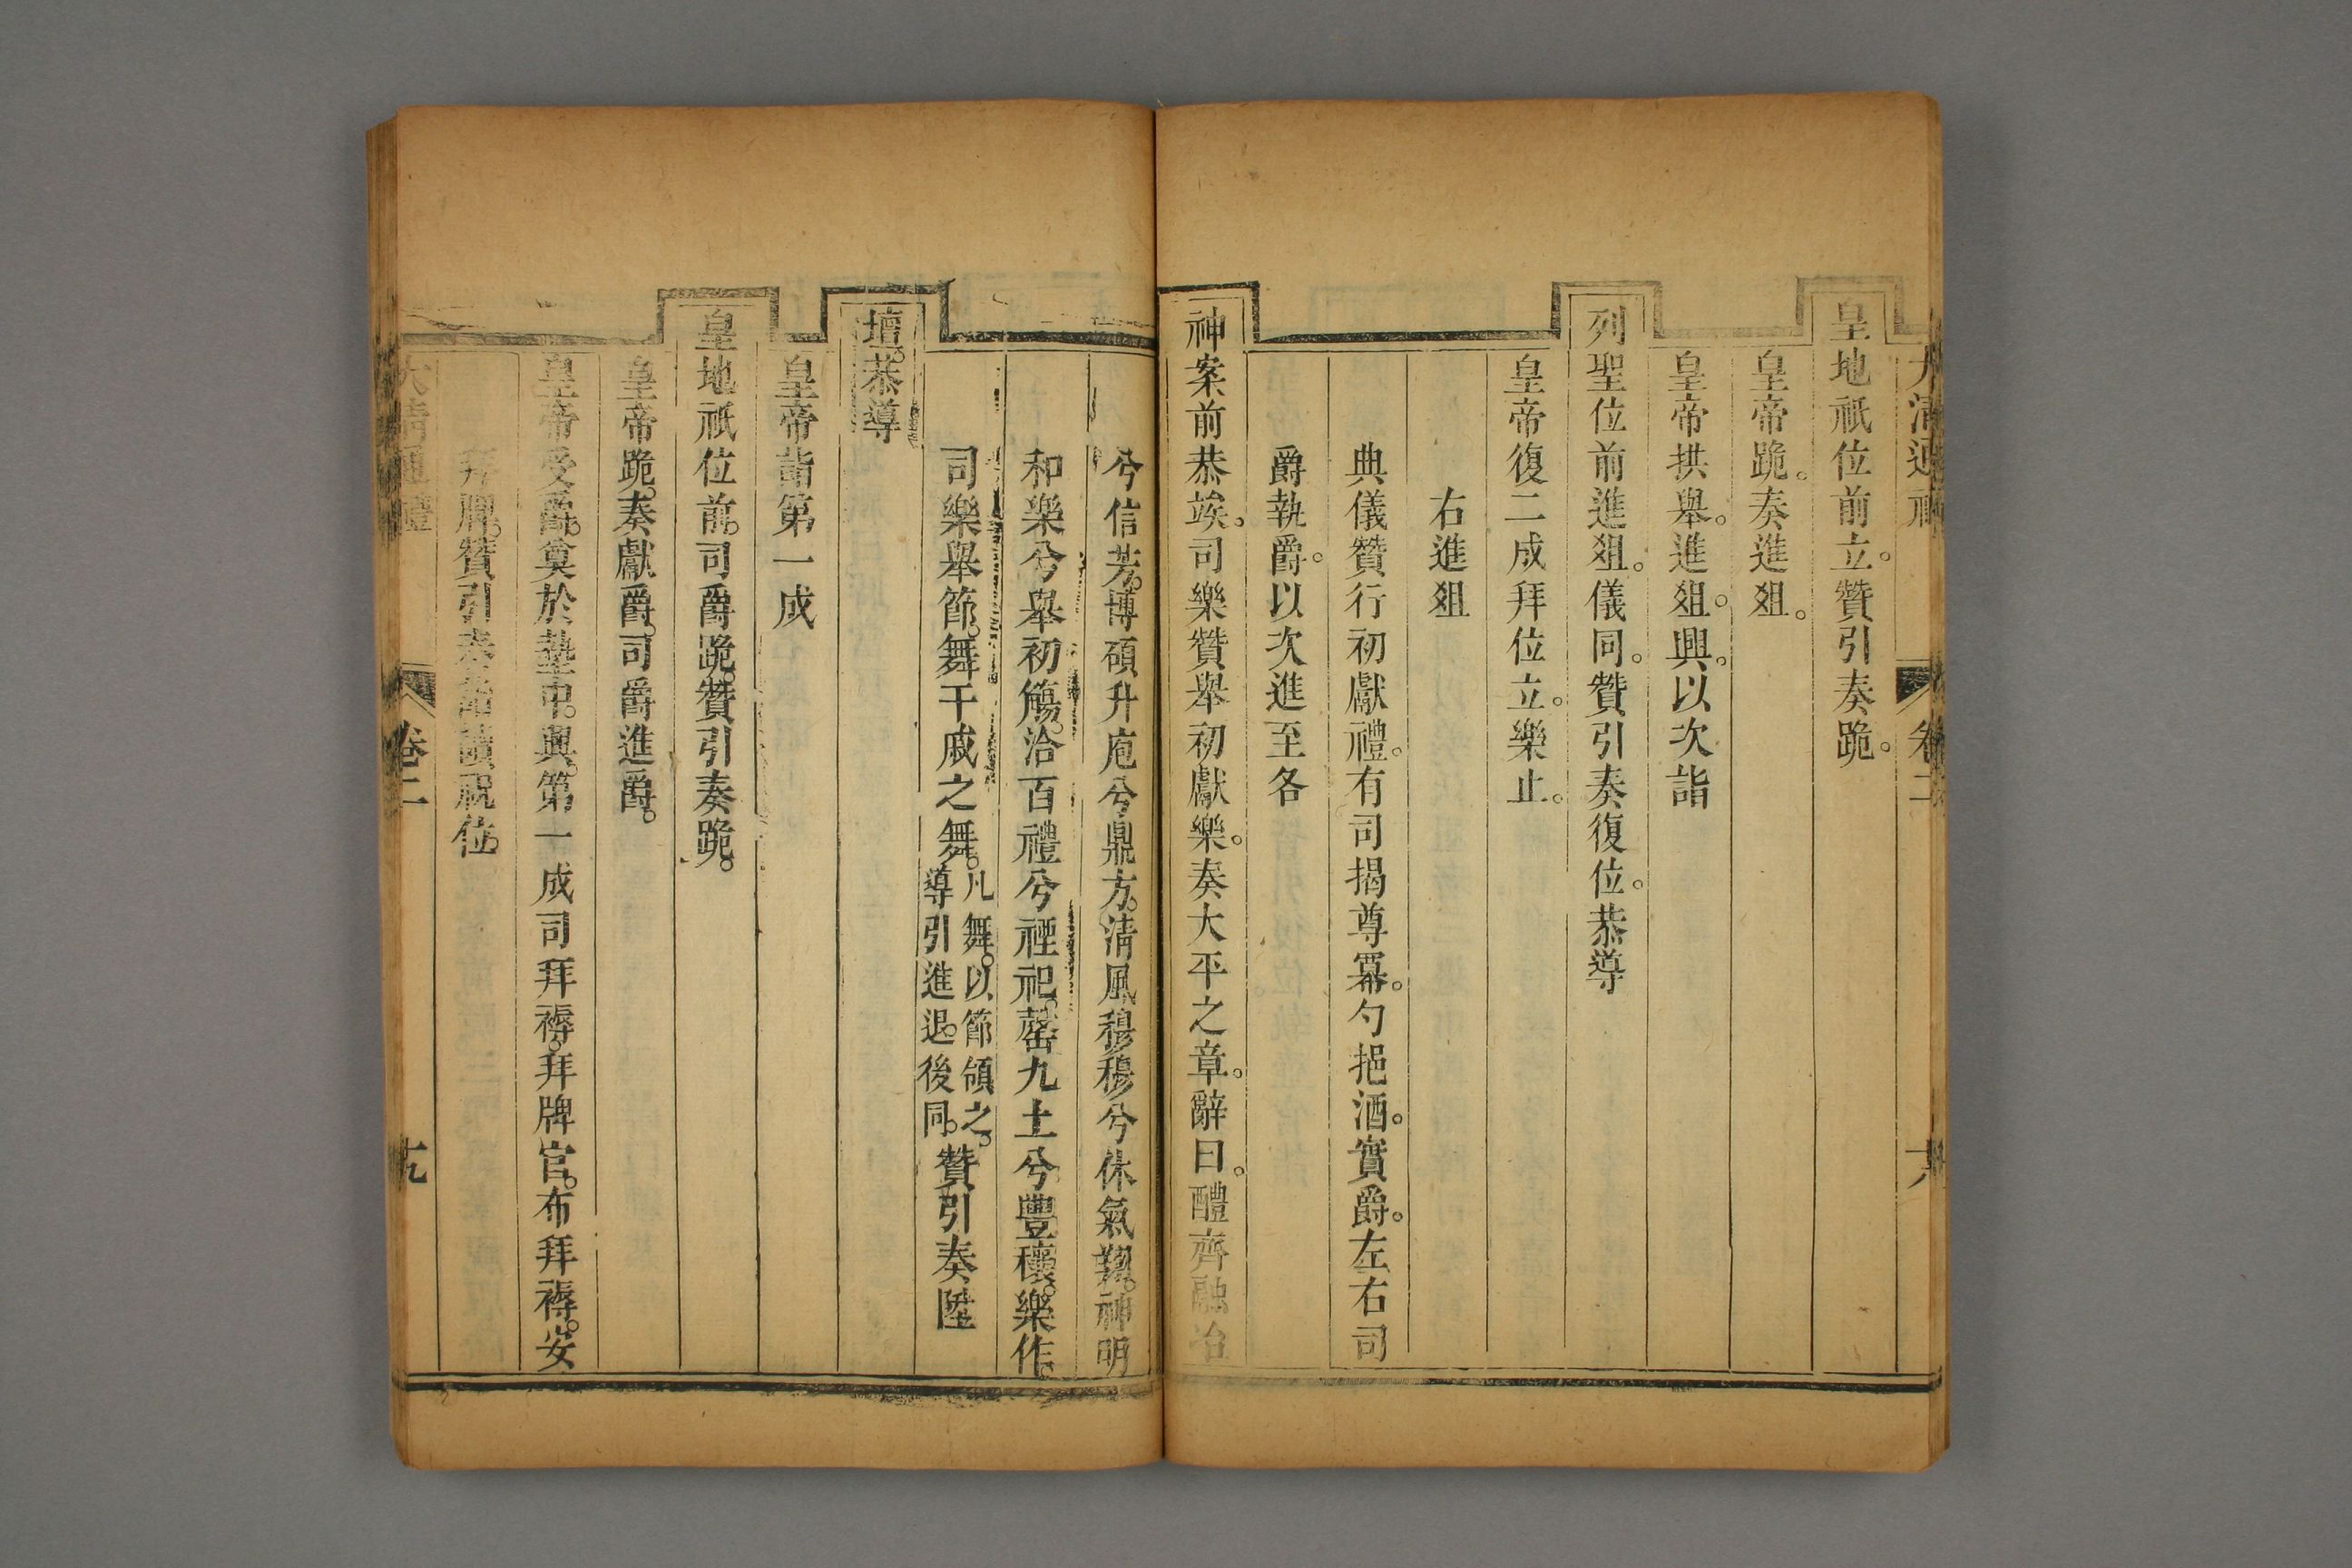 大清通禮 卷二 十八
皇地祇位前立。贊引奏跪。
皇帝跪。奏進俎。
皇帝拱舉。進俎。興。以次詣
列聖位前進俎。儀同。贊引奏復位。恭導
皇帝復二成拜位立。樂止。
右進俎
典儀贊行初獻禮。有司揭尊冪。勺挹酒。實爵。左右司
爵執爵。以次進至各
神案前恭竢。司樂贊舉初獻樂。奏大平之章。辭曰。醴齊融冶
兮信芳。博碩升庖兮鼎方。清風穆穆兮休氣翔。神明
和樂兮舉初觴。洽百禮兮禋祀。罄九土兮豐穰。樂作。
司樂舉節。舞干戚之舞。凡舞。以節領之。導引進退。後同。贊引奏陞
壇。恭導
皇帝詣第一成
皇地祇位前。司爵跪。贊引奏跪。
皇帝跪。奏獻爵。司爵進爵。
皇帝受爵。奠於墊中。興。第一成司拜褥。拜牌官。布拜褥。安
拜牌。贊引奏詣讀祝位。
大清通禮 卷二 十九